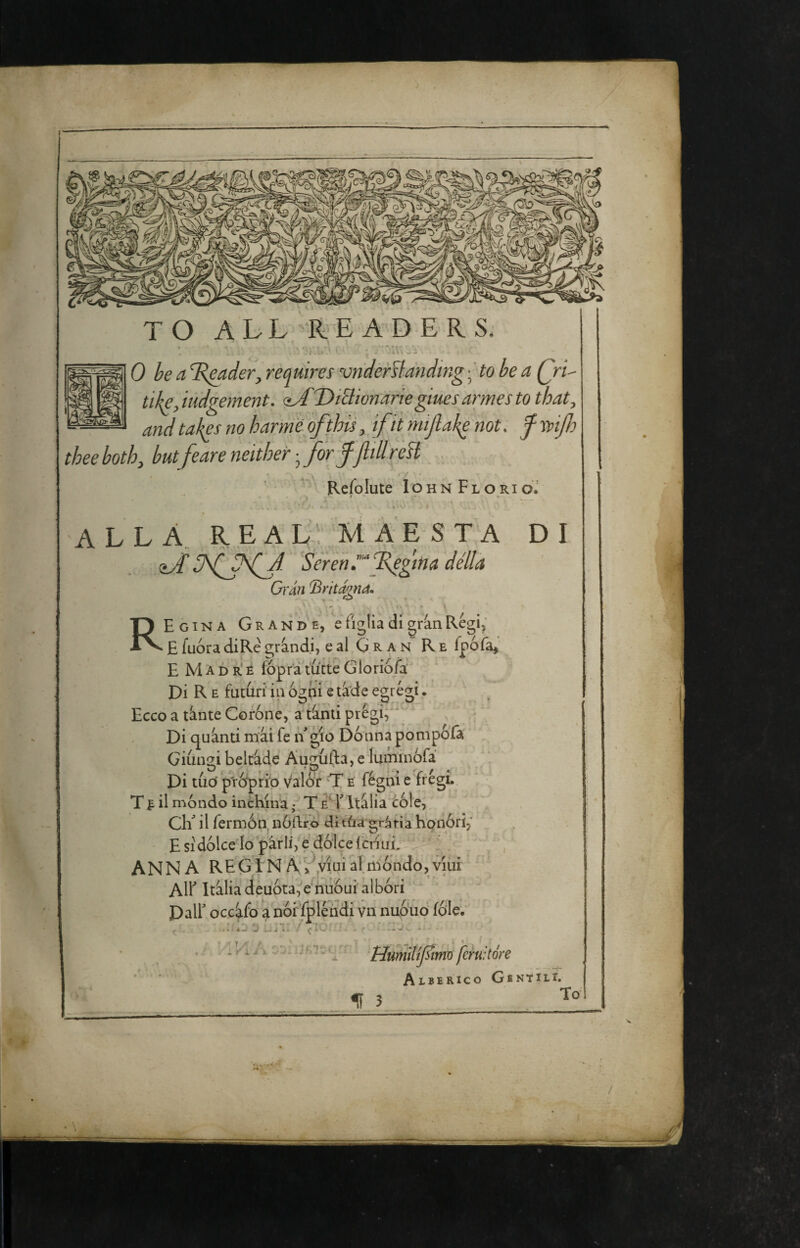 TO ALL READERS.
TO be a Reader, requires vnderstanding; to be a Cri-
tike, iudgement. A Dictionarie giues armes to that,
and takes no harme of this, if it mistake not. I wish
thee both, but feare neither; for I still rest
Resolute IOHN FLORIO.
ALLA REAL MAESTA DI
ANNA Seren.ma Regina délla
Grán Britágna.
REGINA GRANDE, e fíglia di grán Régi,
E fuóra di Rè grándi, e al GRAN RE spósa,
E MADRE sópra tútte Gloriósa
Di RE futúri in ógni etáde egrégi.
Ecco a tánte Coróne, a tánti prégi,
Di quánti mái se n'gío Dónna pompósa
Giúngi beltáde Augústa, e luminósa
Di túo próprio valór TE ségni e frégi.
TE il móndo inchína; TE l'Itália cóle,
Ch' il sermón nóstro di túa grátia honóri,
E sì dólce lo párli, e dólce scríui.
ANNA REGINA, víui al móndo, víui
All' Itália deuóta, e nuóui albóri
Dall' occáso a nói spléndi vn nuóuo sóle.
Humilíssimo seruitóre
ALBERICO GENTILI.
¶ 3
To